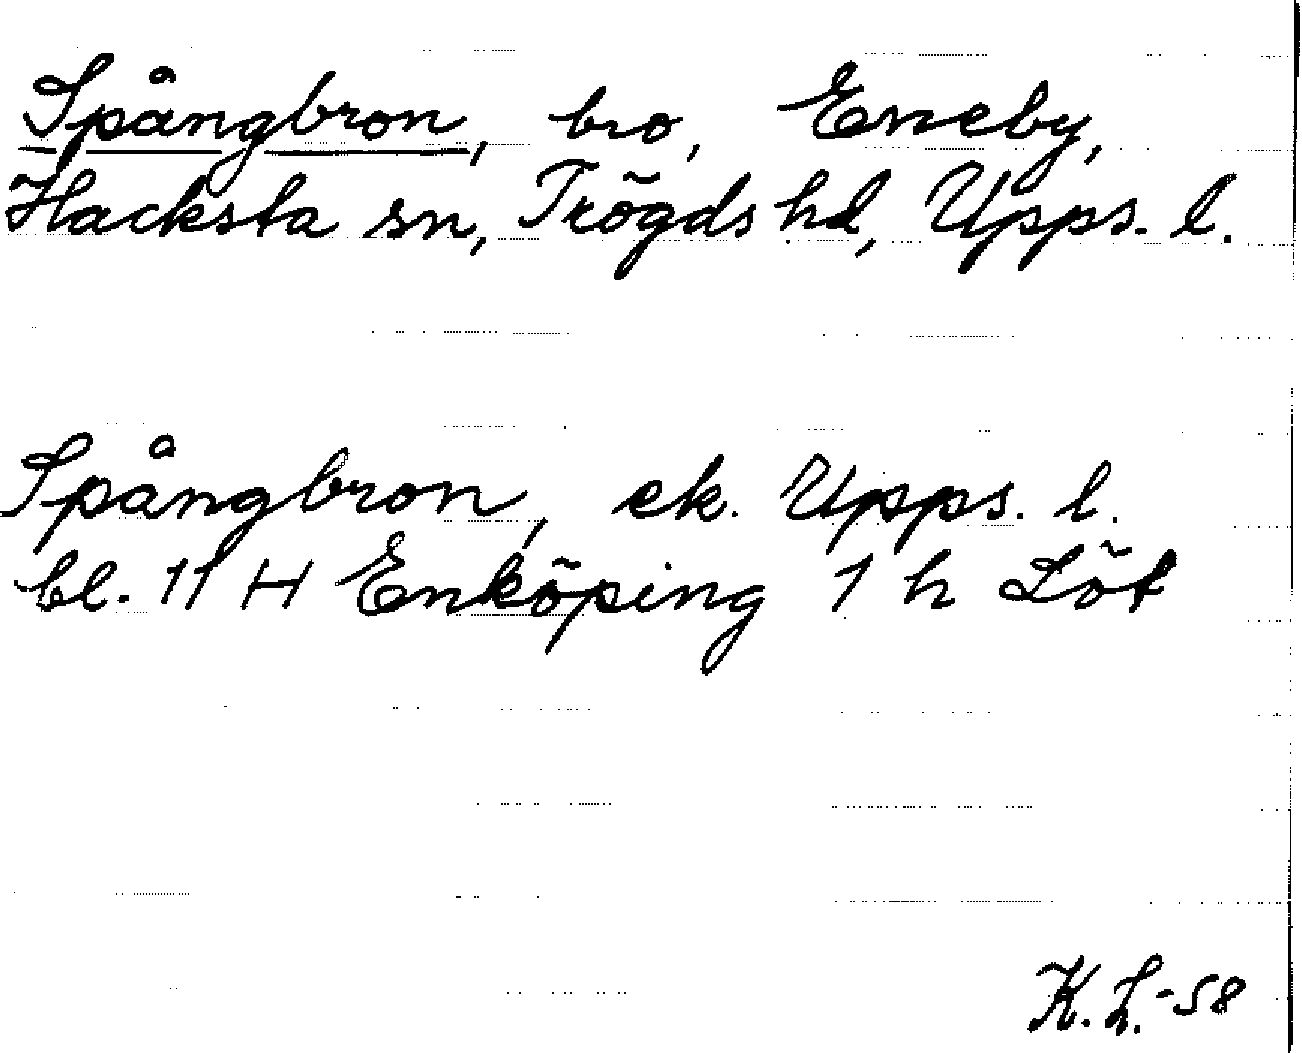 Spångbron, bro, Eneby,
Hacksta sn, Trögds hd, Upps. l.
Spångbron, ek. Upps. l.
bl. 11 H Enköping 1 h Löt
K. L. -58